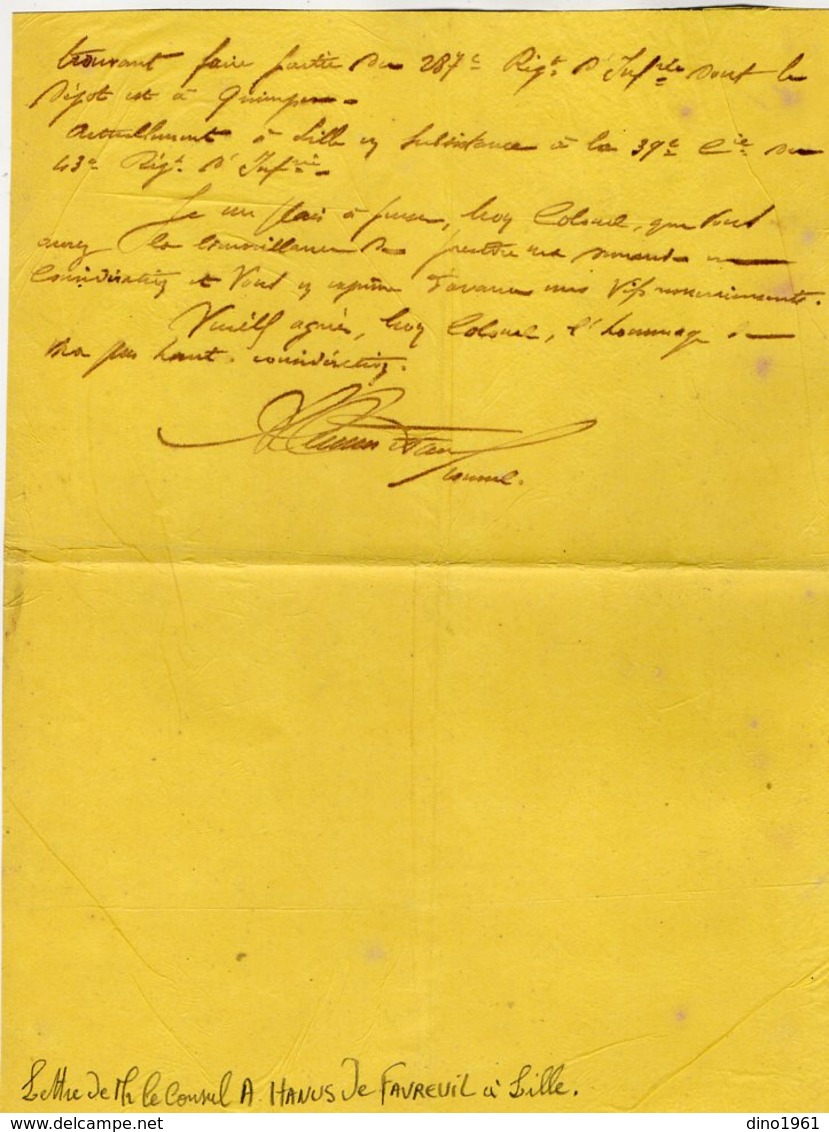 trouvant faire partie du 287e Régt d'Infrie dont le
Dépôt est à Quimper.
Actuellement à Lille en subsistance à la 39e Cie du
43e Régt d'Infrie.
Je me plais à penser, mon Colonel, que vous
aurez la bienveillance de prendre ma demande en
considération et vous en exprime d'avance mes vifs remerciements.
Veuillez agréer, mon Colonel, l'hommage de
ma plus haute considération.
Consul.
Lettre de Mr le Consul A. HANUS De FAVREUIL à Lille.
dino1961